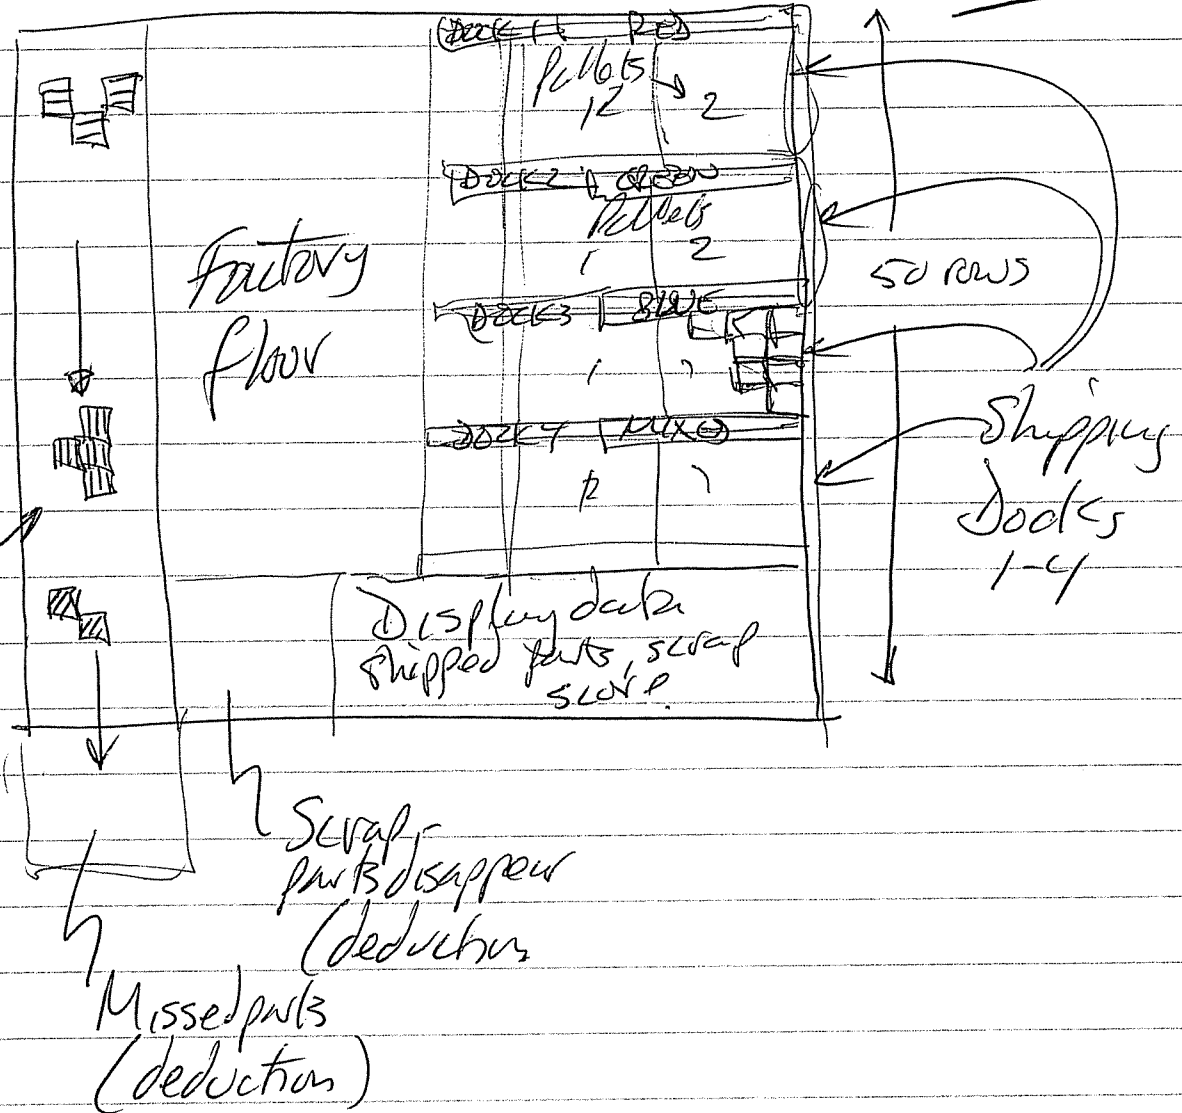 DOCK 1 RED
Pallets
1 2
DOCK 2 GREEN
Pallets
1 2
DOCK 3 BLUE
DOCK 4 MIXED
Factory
floor
50 rows
Shipping
Docks
1-4
Display data
Shipped parts, scrap
score.
Scrap,
parts disappear
(deduction
Missed parts
(deduction)